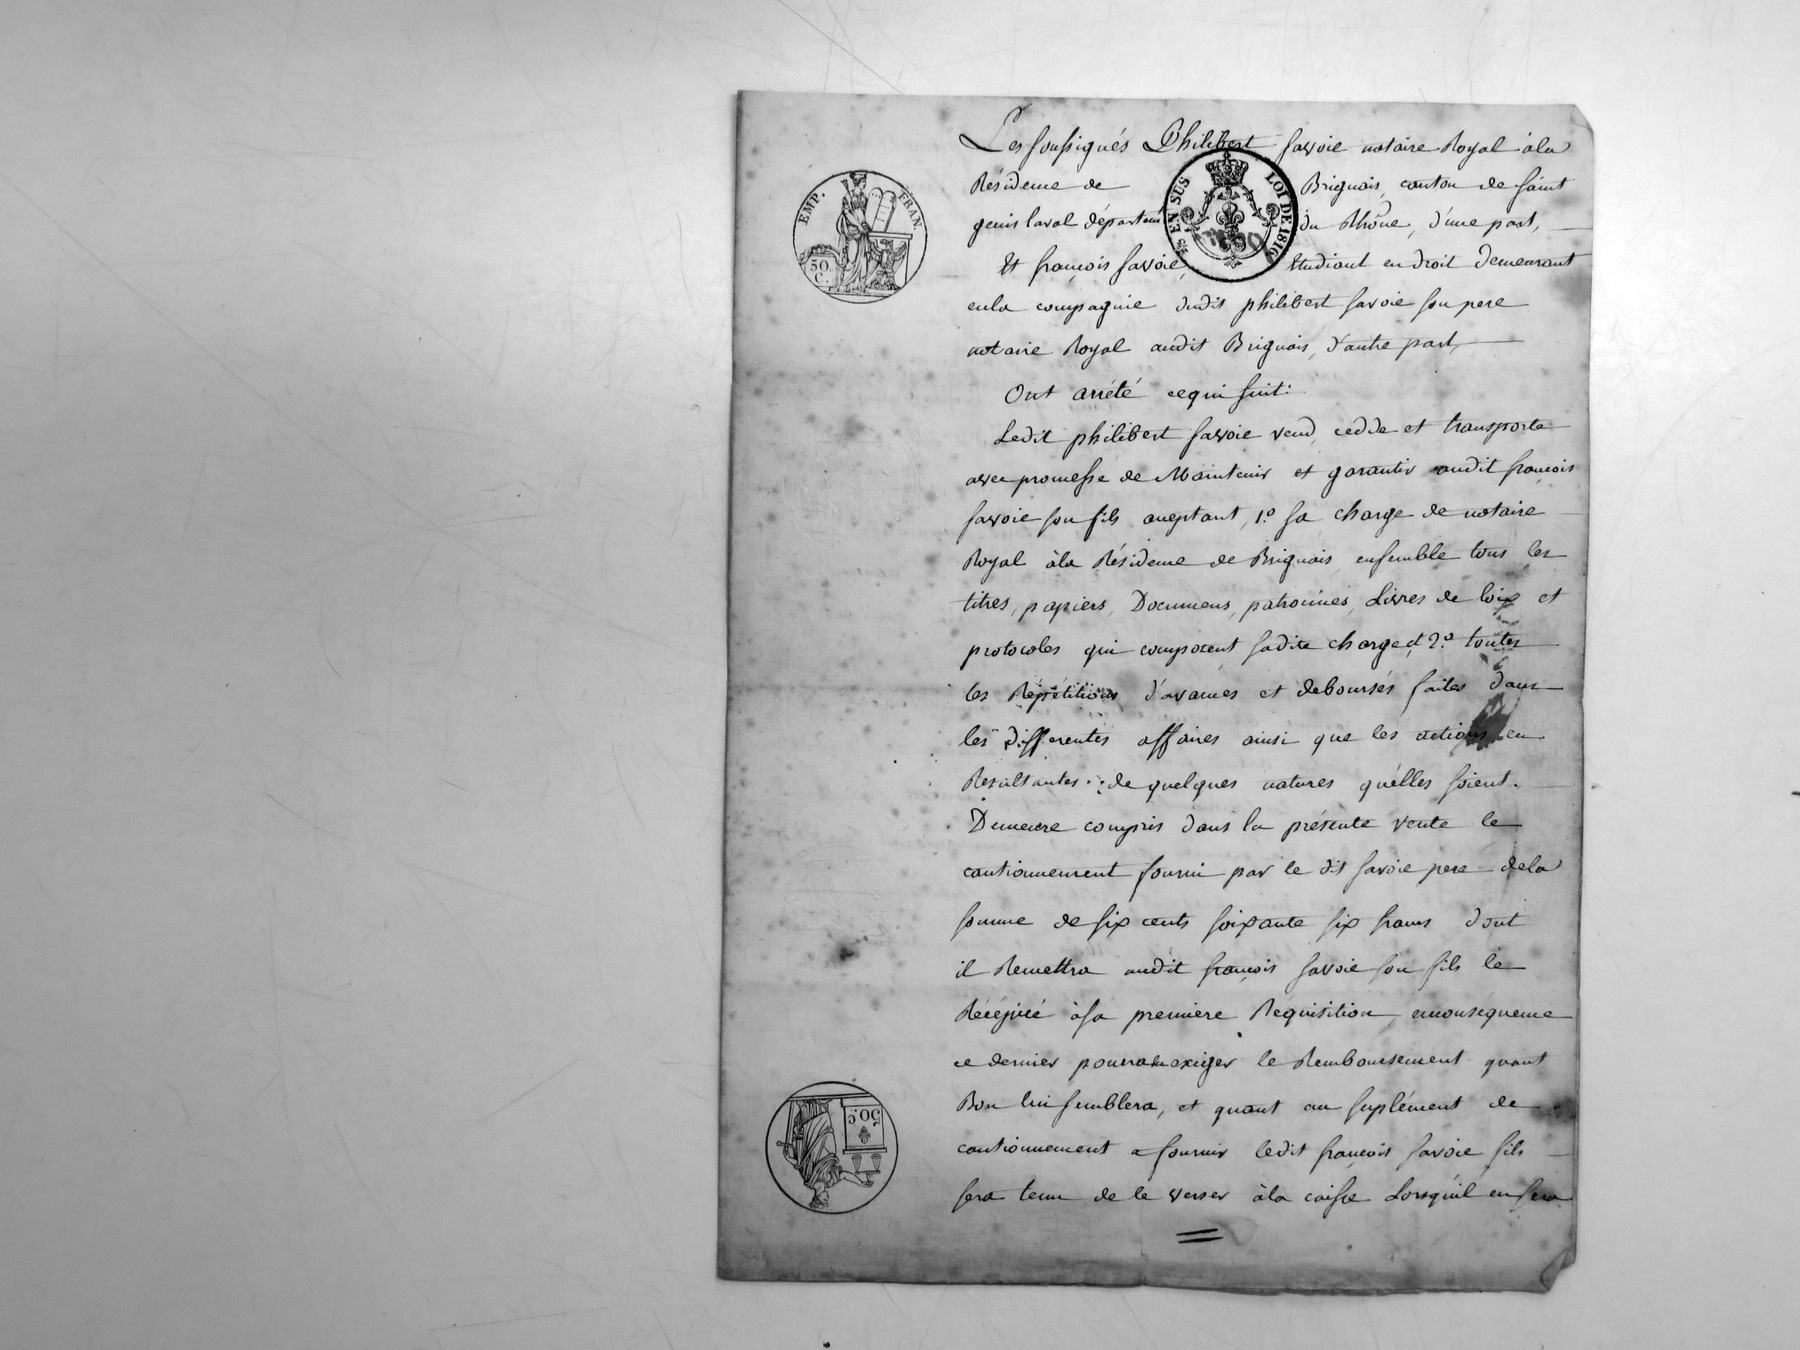 Les soussignés Philibert savoie notaire Royal àla
Résidence de Brignais, canton de saint
genis laval départemt du Rhône, d'une part,
Et françois savoie, Etudiant en droit Demeurant
enla compagnie dudit philibert savoie son pere
notaire Royal audit Brignais, d'autre part,
Ont arrété cequi suit:
Ledit philibert savoie vend, cedde et transporte
avec promesse de Maintenir et garantir audit françois
savoie son fils aceptant, 1.º sa charge de notaire
Royal àla Résidence de Brignais ensemble tous les
titres, papiers, Documens, patrocines, Livres de loix et
protocoles qui composent sadite charge et 2.º toutes
les Répétitions d'avances et deboursés faites dans
les differentes affaires ainsi que les actions en
Resultantes de quelques natures quélles soient.
Demeure compris dans la présente vente le
cautionnement fourni par le dit savoie pere dela
somme de six cents soixante six francs dont
il Remettra audit françois savoie son fils le
Récépicé àsa première Réquisition, enconséquence
ce dernier pourra en exiger le Remboursement quant
Bon lui semblera, et quant au suplément de
cautionnement a fournir ledit françois savoie fils
sera tenu de le verser àla caisse Lorsqu'il en sera
EMP. FRAN.
50 C.
EN SUS LOI DE 1816
50 C.